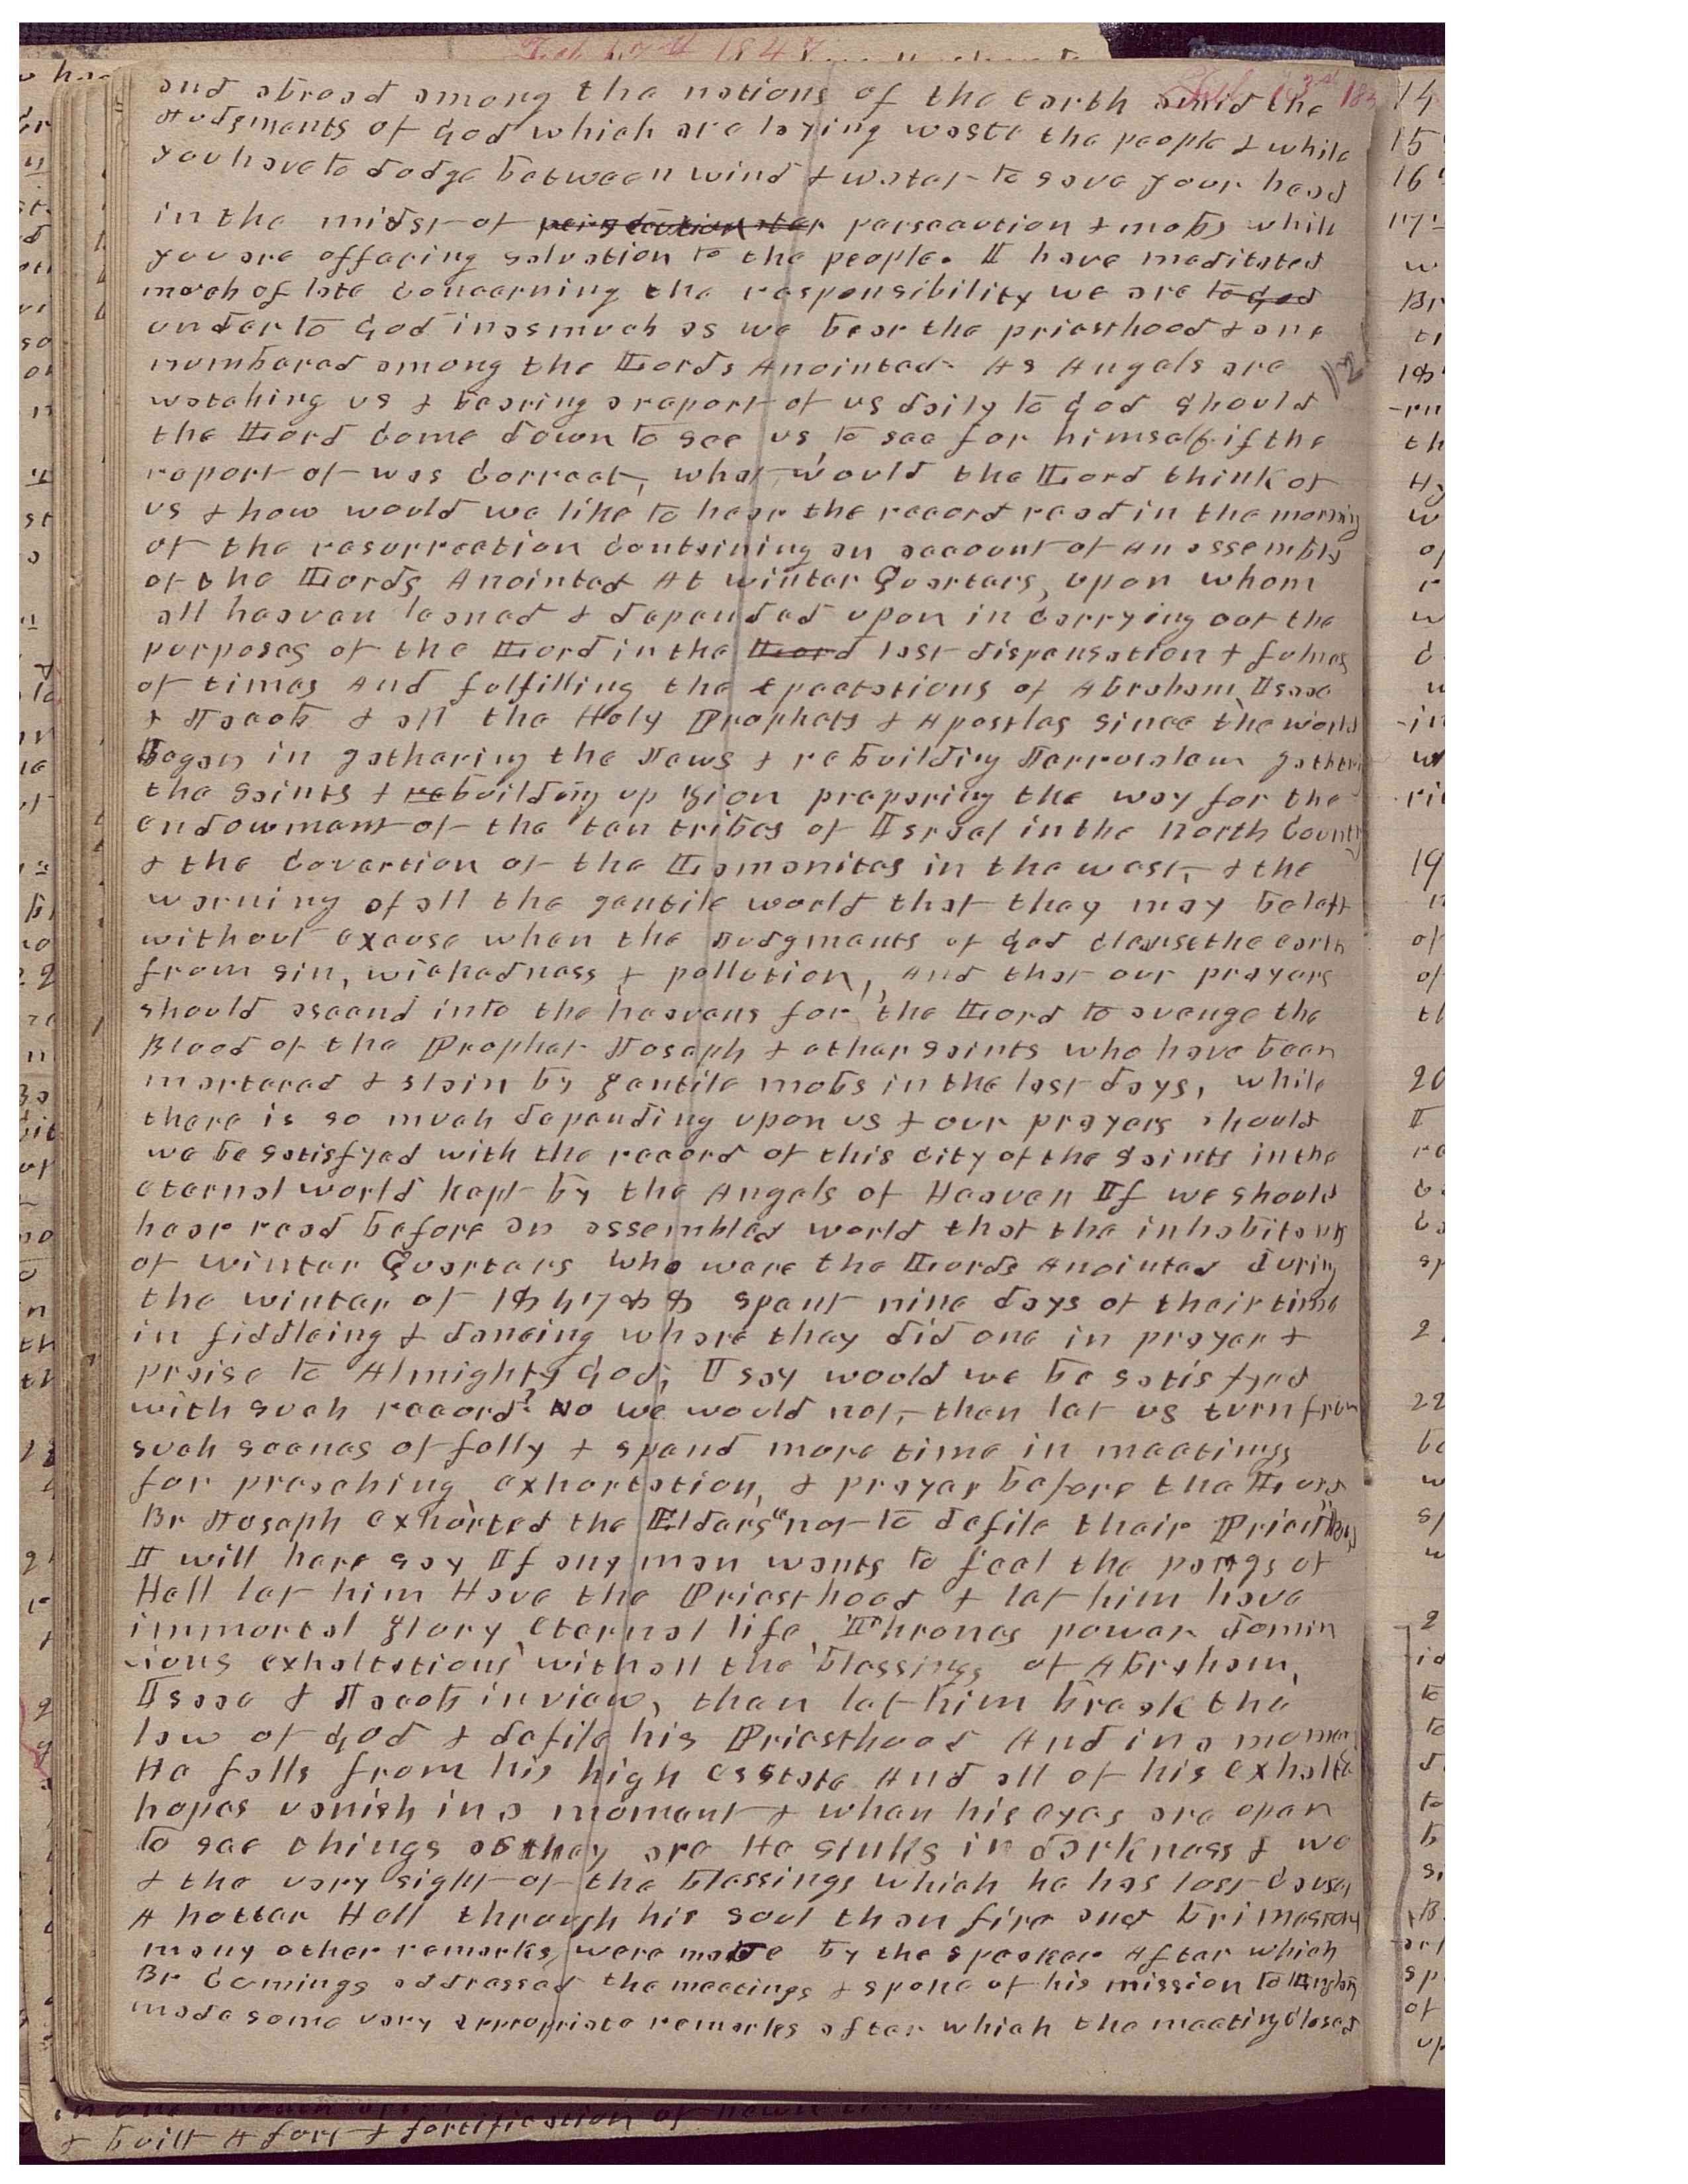 and abroad among the nations of the earth amid the
Judgments of God which are laying waste the people & while
you have to dodge between wind & water to save your head
in the midst of persecution & mobs while
you are offering salvation to the people. I have meditated
much of late concerning the responsibility we are to God
under to God inasmuch as we bear the priesthood & are
numbered among the Lords Anointed. As Angels are
watching us & bearing a report of us daily to God should
the Lord come down to see us, to see for himself if the
report of was correct, what would the Lord think of
us & how would we like to hear the record read in the morning
of the resurrection containing an account of an assembly
of the Lords Anointed At winter Quarters, upon whom
all heaven leaned & depended upon in carrying out the
purposes of the Lord in the Lord last dispensation & fulnes
of times And fulfilling the epectations of Abraham, Isaac
& Jacob & all the Holy Prophets & Apostles since the world
Began in gathering the Jews & rebuilding Jerrusalem gathering
the saints & rebuilding up Zion preparing the way for the
endowment of the ten tribes of Israel in the north Country
& the covertion of the Lamanites in the west, & the
warning of all the gentile world that they may be left
without excuse when the Judgments of God cleanse the earth
from sin, wickedness & pollution, And that our prayers
should ascend into the heavens for the Lord to avenge the
Blood of the Prophet Joseph & other saints who have been
martered & slain by gentile mobs in the last days, while
there is so much depending upon us & our prayers should
we be satisfyed with the record of this city of the saints in the
eternal world kept by the Angels of Heaven If we should
hear read before an assembled world that the inhabitants
of winter Quarters who were the Lords Anointed during
the winter of 1847 & 8 spent nine days of their time
in fiddleing & dancing whare they did one in prayer &
praise to Almighty God, I say would we be satisfyed
with such record? No we would not, then let us turn from
such scenes of folly & spend more time in meetings
for preaching exhortation, & prayer before the Lord
Br Joseph exhorted the Elders "not to defile their Priesthood"
I will here say If any man wants to feel the pangs of
Hell let him Have the Priesthood & let him have
immortal glory, eternal life, Thrones power domin
-ions exhaltations with all the blessings of Abraham,
Isaac & Jacob in view, then let him break the
law of God & defile his Priesthood And in a moment
He falls from his high esstate And all of his exhalted
hopes vanish in a moment & when his eyes are open
to see things as they are He sinks in darkness & wo
& the very sight of the blessings which he has lost cause
A hotter Hell through his soul than fire and brimestone
many other remarks were made by the speaker After which
Br Comings addressed the meetings & spoke of his mission to England
made some very appropriate remarks after which the meeting closed
& built A fort & fortification of